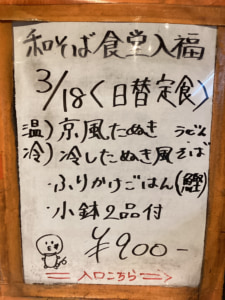 和そば食堂入福
3/18く日替定食〉
温）京風たぬき うどん
冷）冷したぬき風そば
・ふりかけごはん（鰹）
・小鉢2品付
¥900-
入口こちら